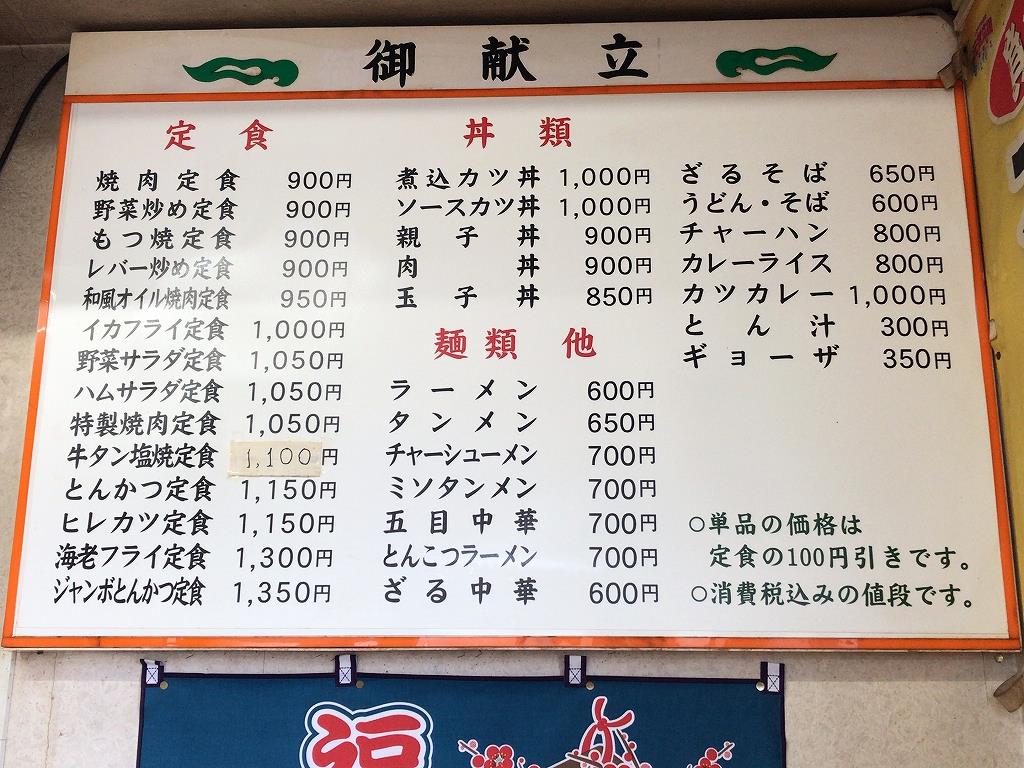 御献立
定食
焼肉定食 900円
野菜炒め定食 900円
もつ焼定食 900円
レバー炒め定食 900円
和風オイル焼肉定食 950円
イカフライ定食 1,000円
野菜サラダ定食 1,050円
ハムサラダ定食 1,050円
特製焼肉定食 1,050円
牛タン塩焼定食 1,100円
とんかつ定食 1,150円
ヒレカツ定食 1,150円
海老フライ定食 1,300円
ジャンボとんかつ定食 1,350円
丼類
煮込カツ丼 1,000円
ソースカツ丼 1,000円
親子丼 900円
肉丼 900円
玉子丼 850円
麺類 他
ラーメン 600円
タンメン 650円
チャーシューメン 700円
ミソタンメン 700円
五目中華 700円
とんこつラーメン 700円
ざる中華 600円
ざるそば 650円
うどん・そば 600円
チャーハン 800円
カレーライス 800円
カツカレー 1,000円
とん汁 300円
ギョーザ 350円
○単品の価格は
定食の100円引きです。
○消費税込みの値段です。